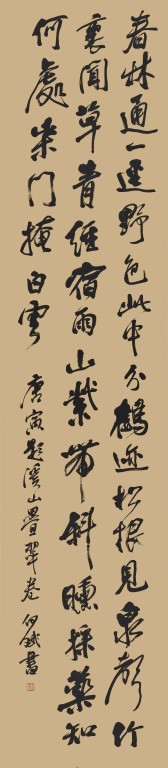 春林通一逕野色此中分鶴迹松根見泉聲竹
裏聞草青經宿雨山紫帶斜曛採藥知
何處柴門掩白雲
唐寅題溪山疊翠卷 書